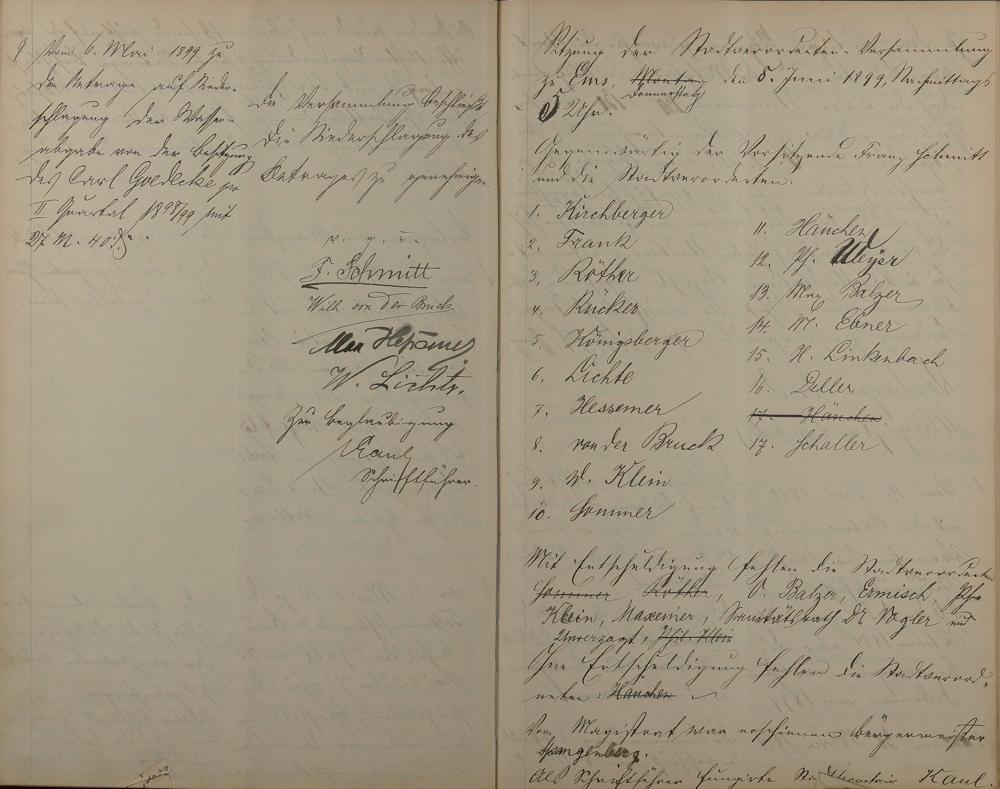 9 Vom 6. Mai 1899 zu
dem Antrage auf Nieder-
schlagung der Wasser-
abgabe von der Besitzung
des Carl Goedecke pro
II Quartal 1898/99 mit
27 M. 40 ₰.
Die Versammlung beschließt
die Niederschlagung des
Betrages zu genehmigen.
v. g. u.
F. Schmitt
Wilh. von der Bruck
Max Hessemer
W. Lichte.
Zur Beglaubigung
Kaul
Schriftführer.
Sitzung der Stadtverordneten-Versammlung
zu Ems, Montag den 5. Juni 1899, Nachmittags
Donnerstag
5 Uhr.
Gegenwärtig der Vorsitzende Franz Schmitt
und die Stadtverordneten:
1. Kirchberger
2. Frank
3. Röther
4. Rücker
5. Königsberger
6. Lichte
7. Hessemer
8. von der Bruck
9. W. Klein
10. Sommer
11. Häuchen
12. Ph. Weyer
13. Max Balzer
14. M. Ebner
15. H. Linkenbach
16. Deller
17. Häuchen
17. Schaller
Mit Entschuldigung fehlen die Stadtverordneten
Sommer Röther, O. Balzer, Ermisch, Ph.
Klein, Maxeiner, Sanitätsrath Dr Vogler und
Unverzagt, Phil. Klein
Ohne Entschuldigung fehlen die Stadtverord-
neten: Häuchen
Vom Magistrat war erschienen Bürgermeister
Spangenberg.
Als Schriftführer fungirte Stadtsecretair Kaul.